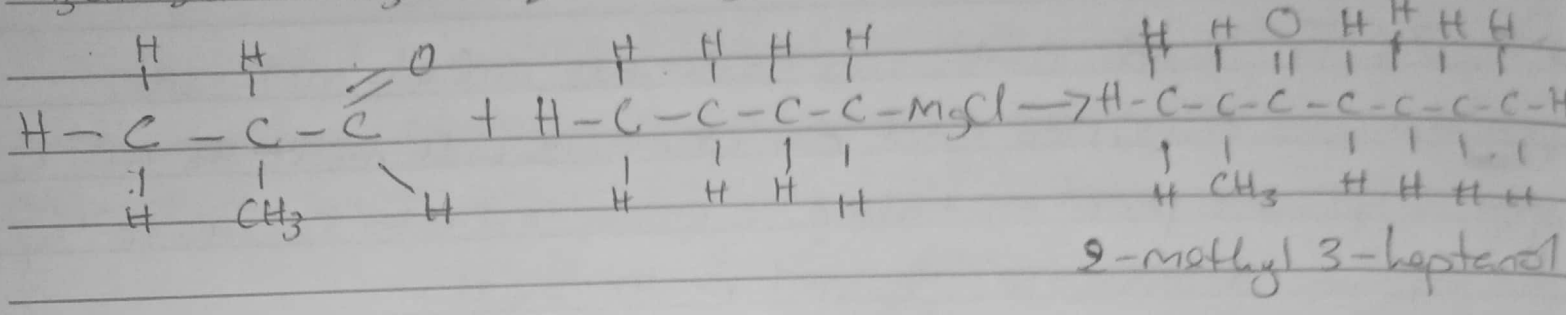 H H O H H H H H H O H H H H
H - C - C - C + H - C - C - C - C - MgCl → H - C - C - C - C - C - C - C - H
H CH₃ H H H H H H CH₃ H H H H
2-methyl 3-heptanol